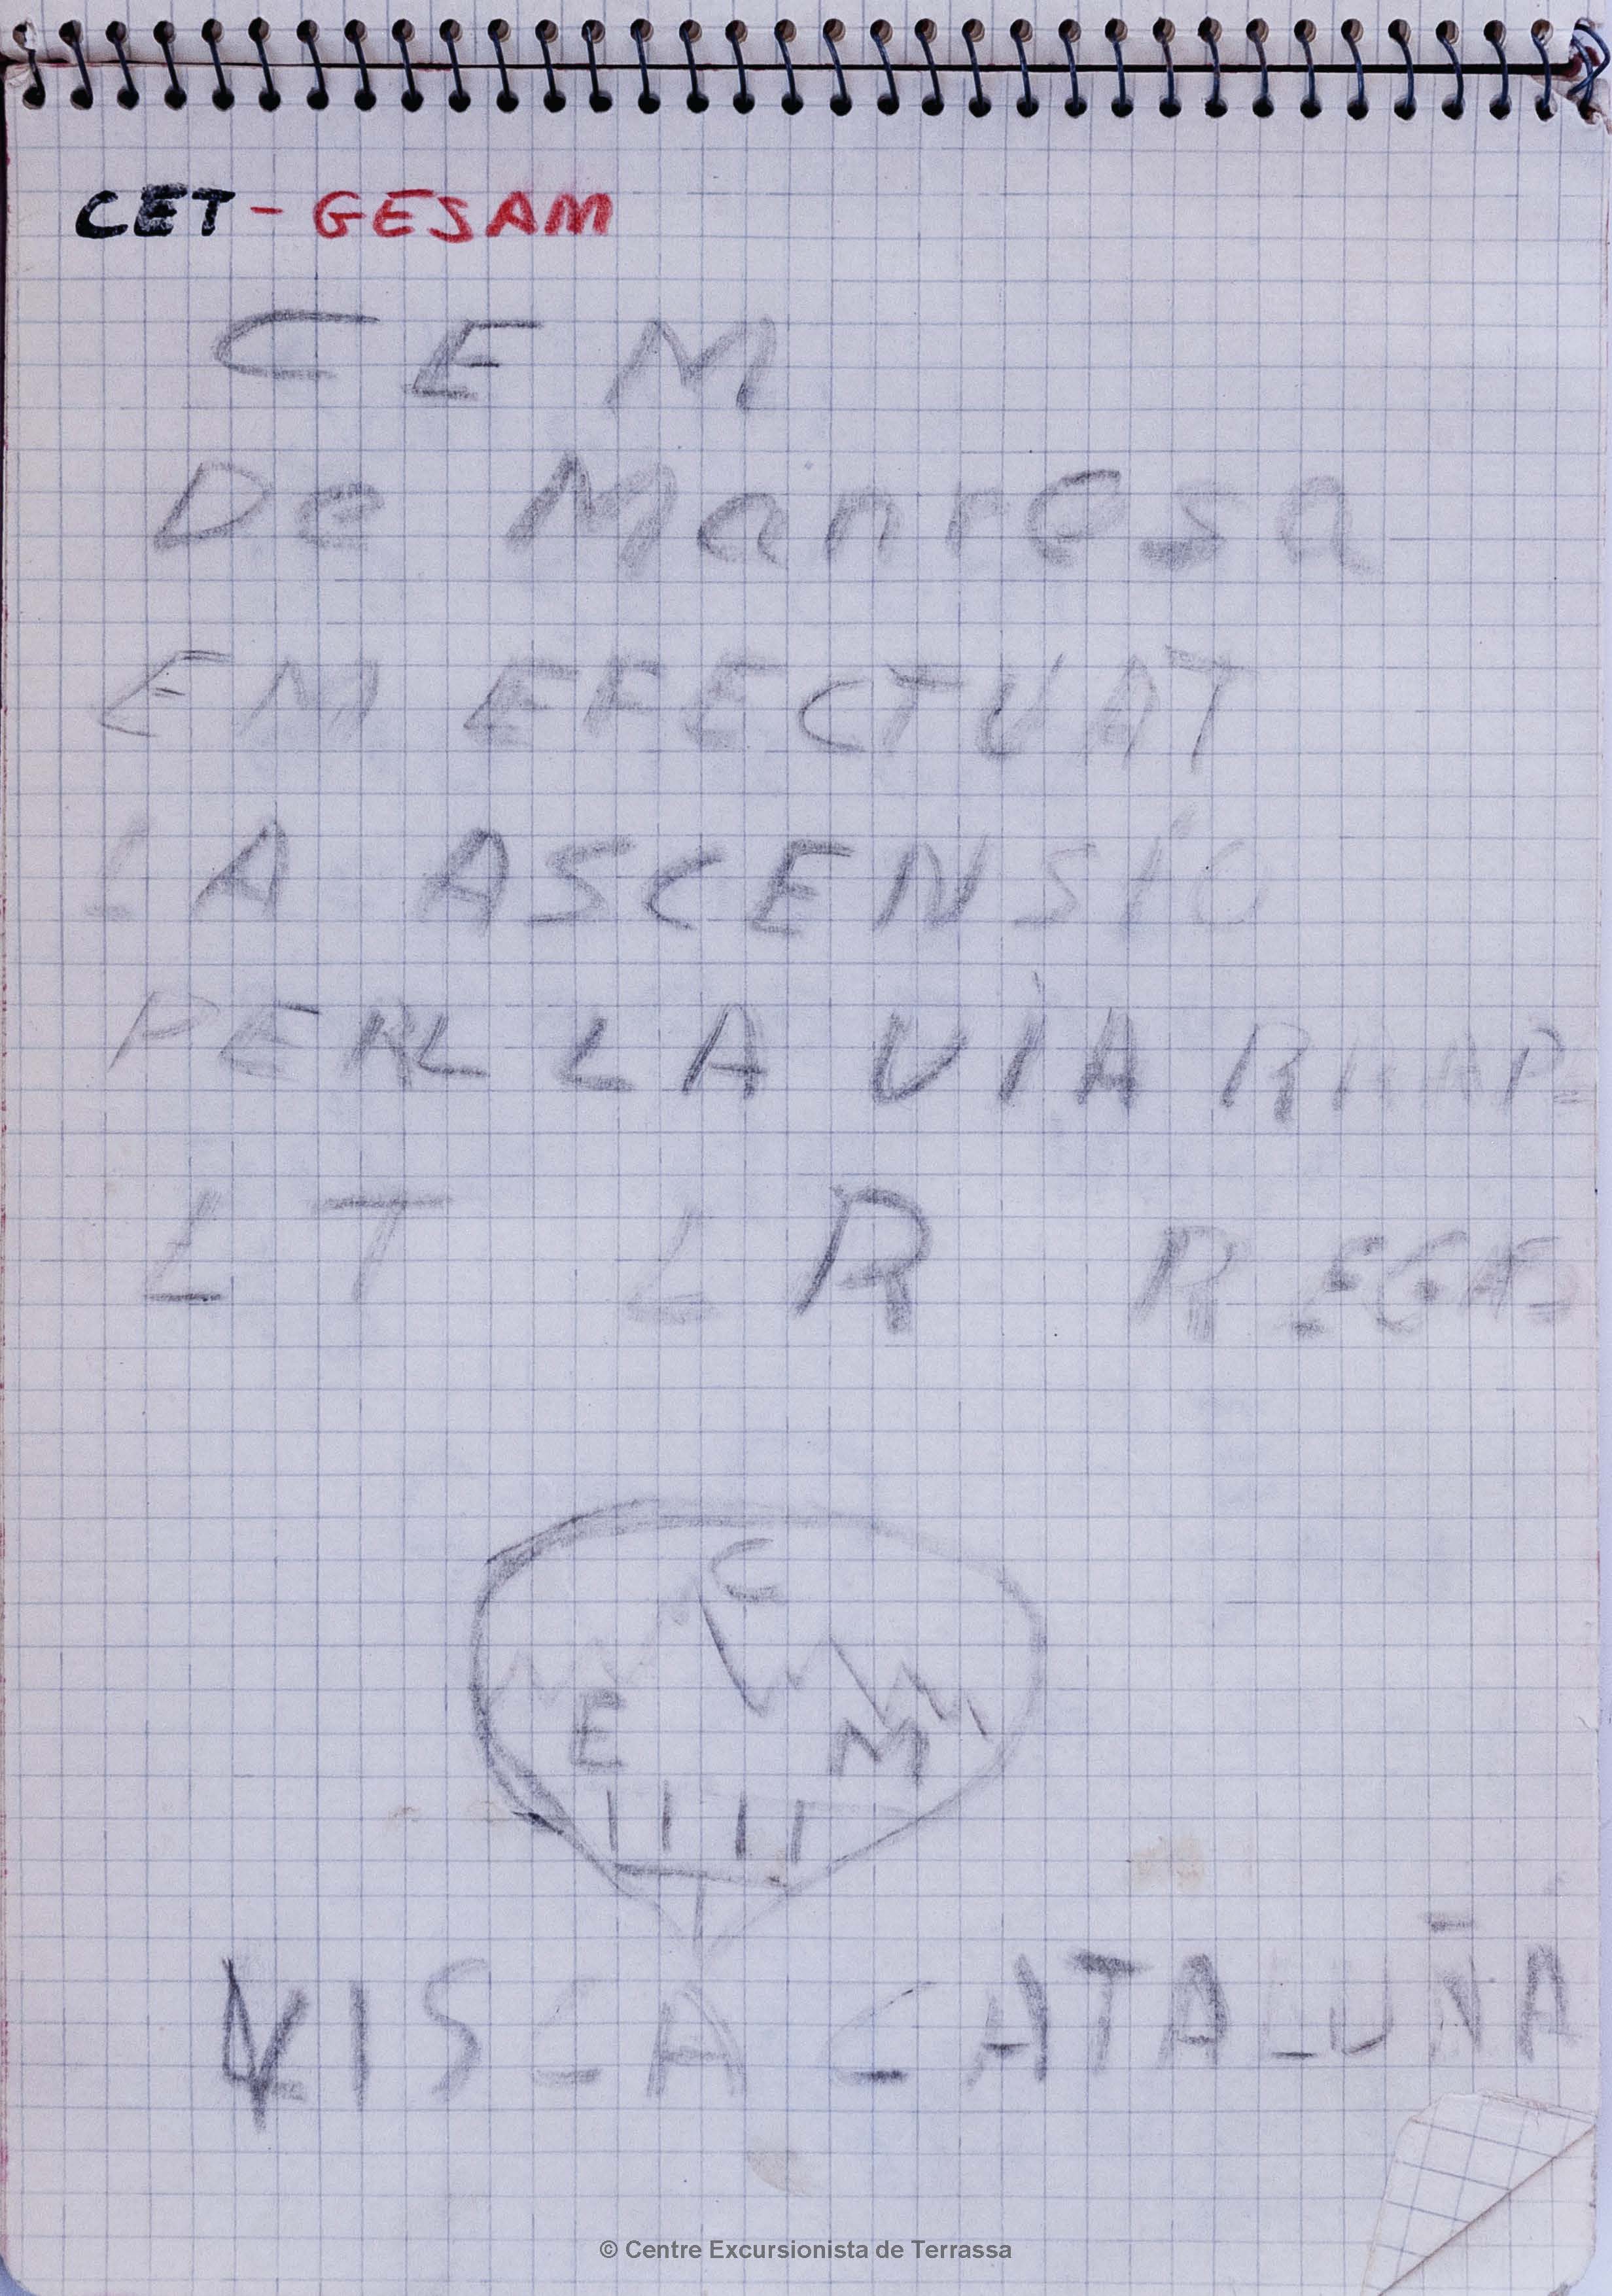 CET - GESAM
CEM
De Manresa
EM EFECTUAT
LA ASCENSIÓ
PER LA VIA
C
E M
VISCA CATALUÑA
© Centre Excursionista de Terrassa